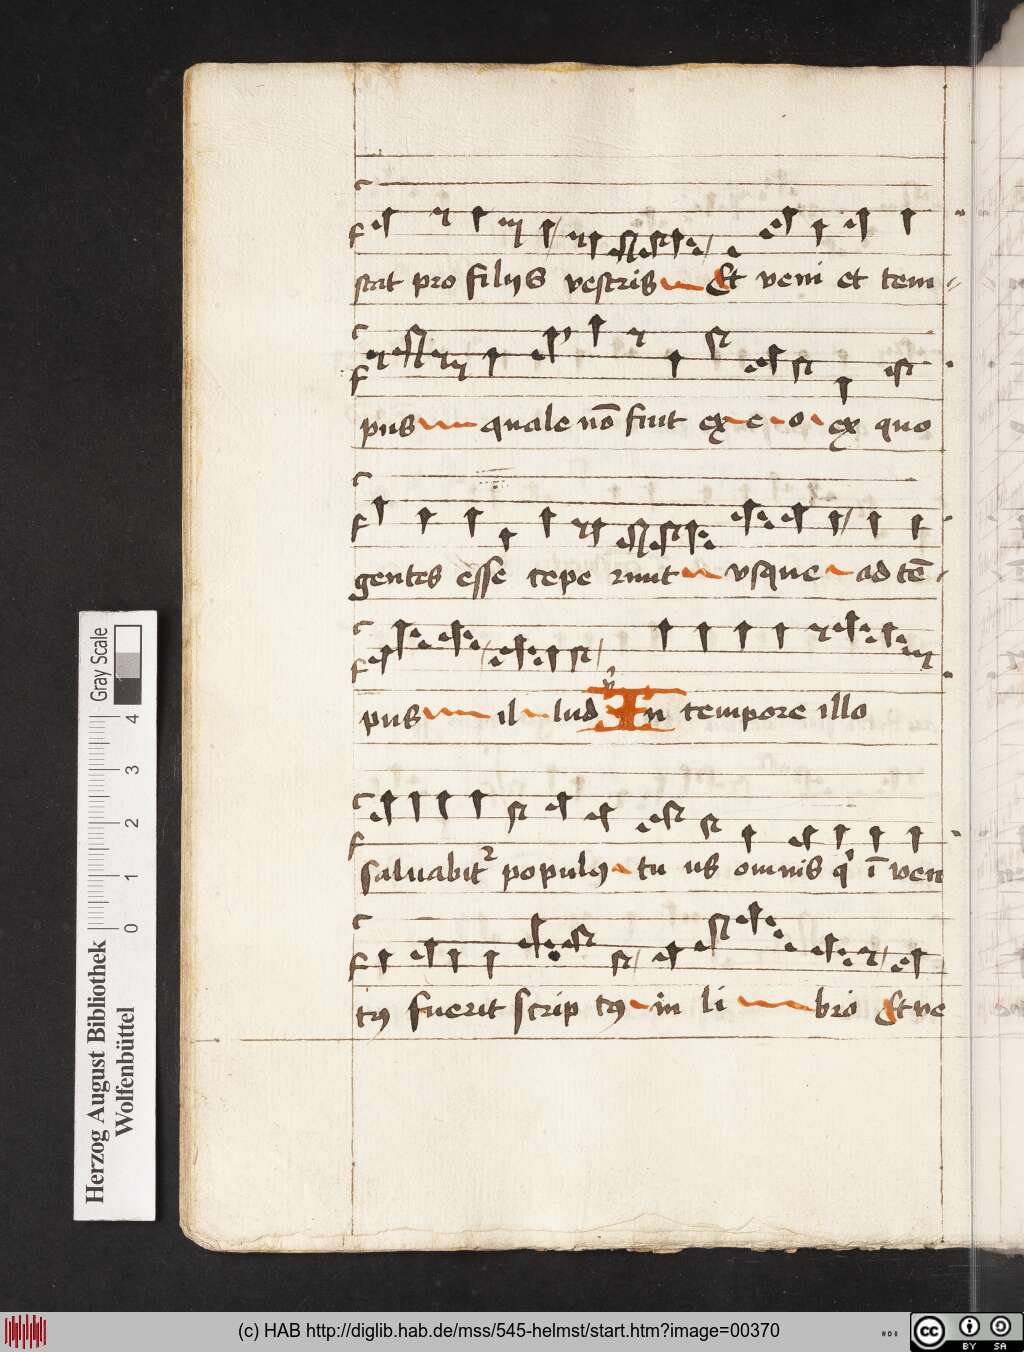 stat pro filijs vestris Et veni et tem
pus quale nō fuit ex e o ex quo
gentes esse cepe runt vsque ad tē
pus il lud In tempore illo
saluabit populꝰ tu us omnis q ī ven
tꝰ fuerit scrip tꝰ in li bro Et ve
Gray Scale
4
3
2
1
0
Herzog August Bibliothek
Wolfenbüttel
(c) HAB http://diglib.hab.de/mss/545-helmst/start.htm?image=00370
cc BY SA